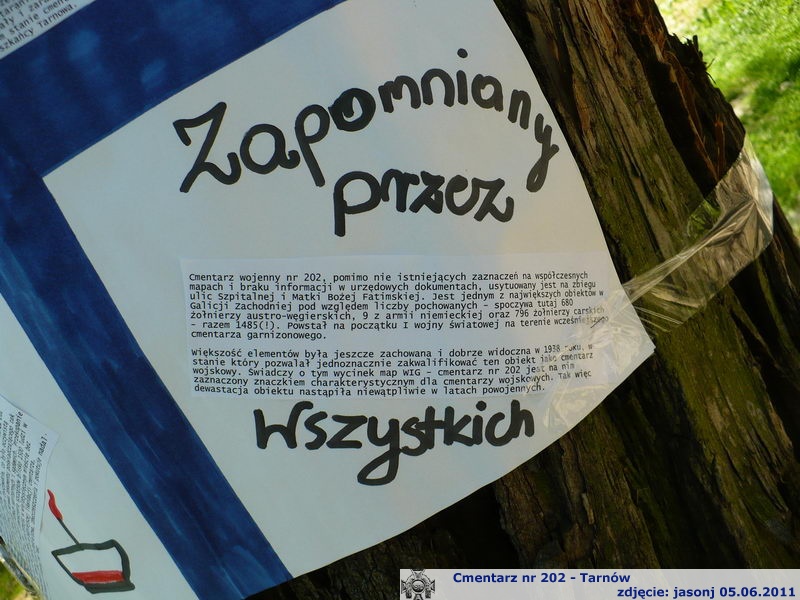 stanie cmen
szkańcy Tarnowa.
Zapomniany
przez
Cmentarz wojenny nr 202, pomimo nie istniejących zaznaczeń na współczesnych
mapach i braku informacji w urzędowych dokumentach, usytuowany jest na zbiegu
ulic Szpitalnej i Matki Bożej Fatimskiej. Jest jednym z największych obiektów w
Galicji Zachodniej pod względem liczby pochowanych - spoczywa tutaj 680
żołnierzy austro-węgierskich, 9 z armii niemieckiej oraz 796 żołnierzy carskich
- razem 1485(!). Powstał na początku I wojny światowej na terenie wcześniejszego
cmentarza garnizonowego.
Większość elementów była jeszcze zachowana i dobrze widoczna w 1938 roku, w
stanie który pozwalał jednoznacznie zakwalifikować ten obiekt jako cmentarz
wojskowy. Świadczy o tym wycinek map WIG - cmentarz nr 202 jest na nim
zaznaczony znaczkiem charakterystycznym dla cmentarzy wojskowych. Tak więc
dewastacja obiektu nastąpiła niewątpliwie w latach powojennych.
Wszystkich
Cmentarz nr 202 - Tarnów
zdjęcie: jasonj 05.06.2011